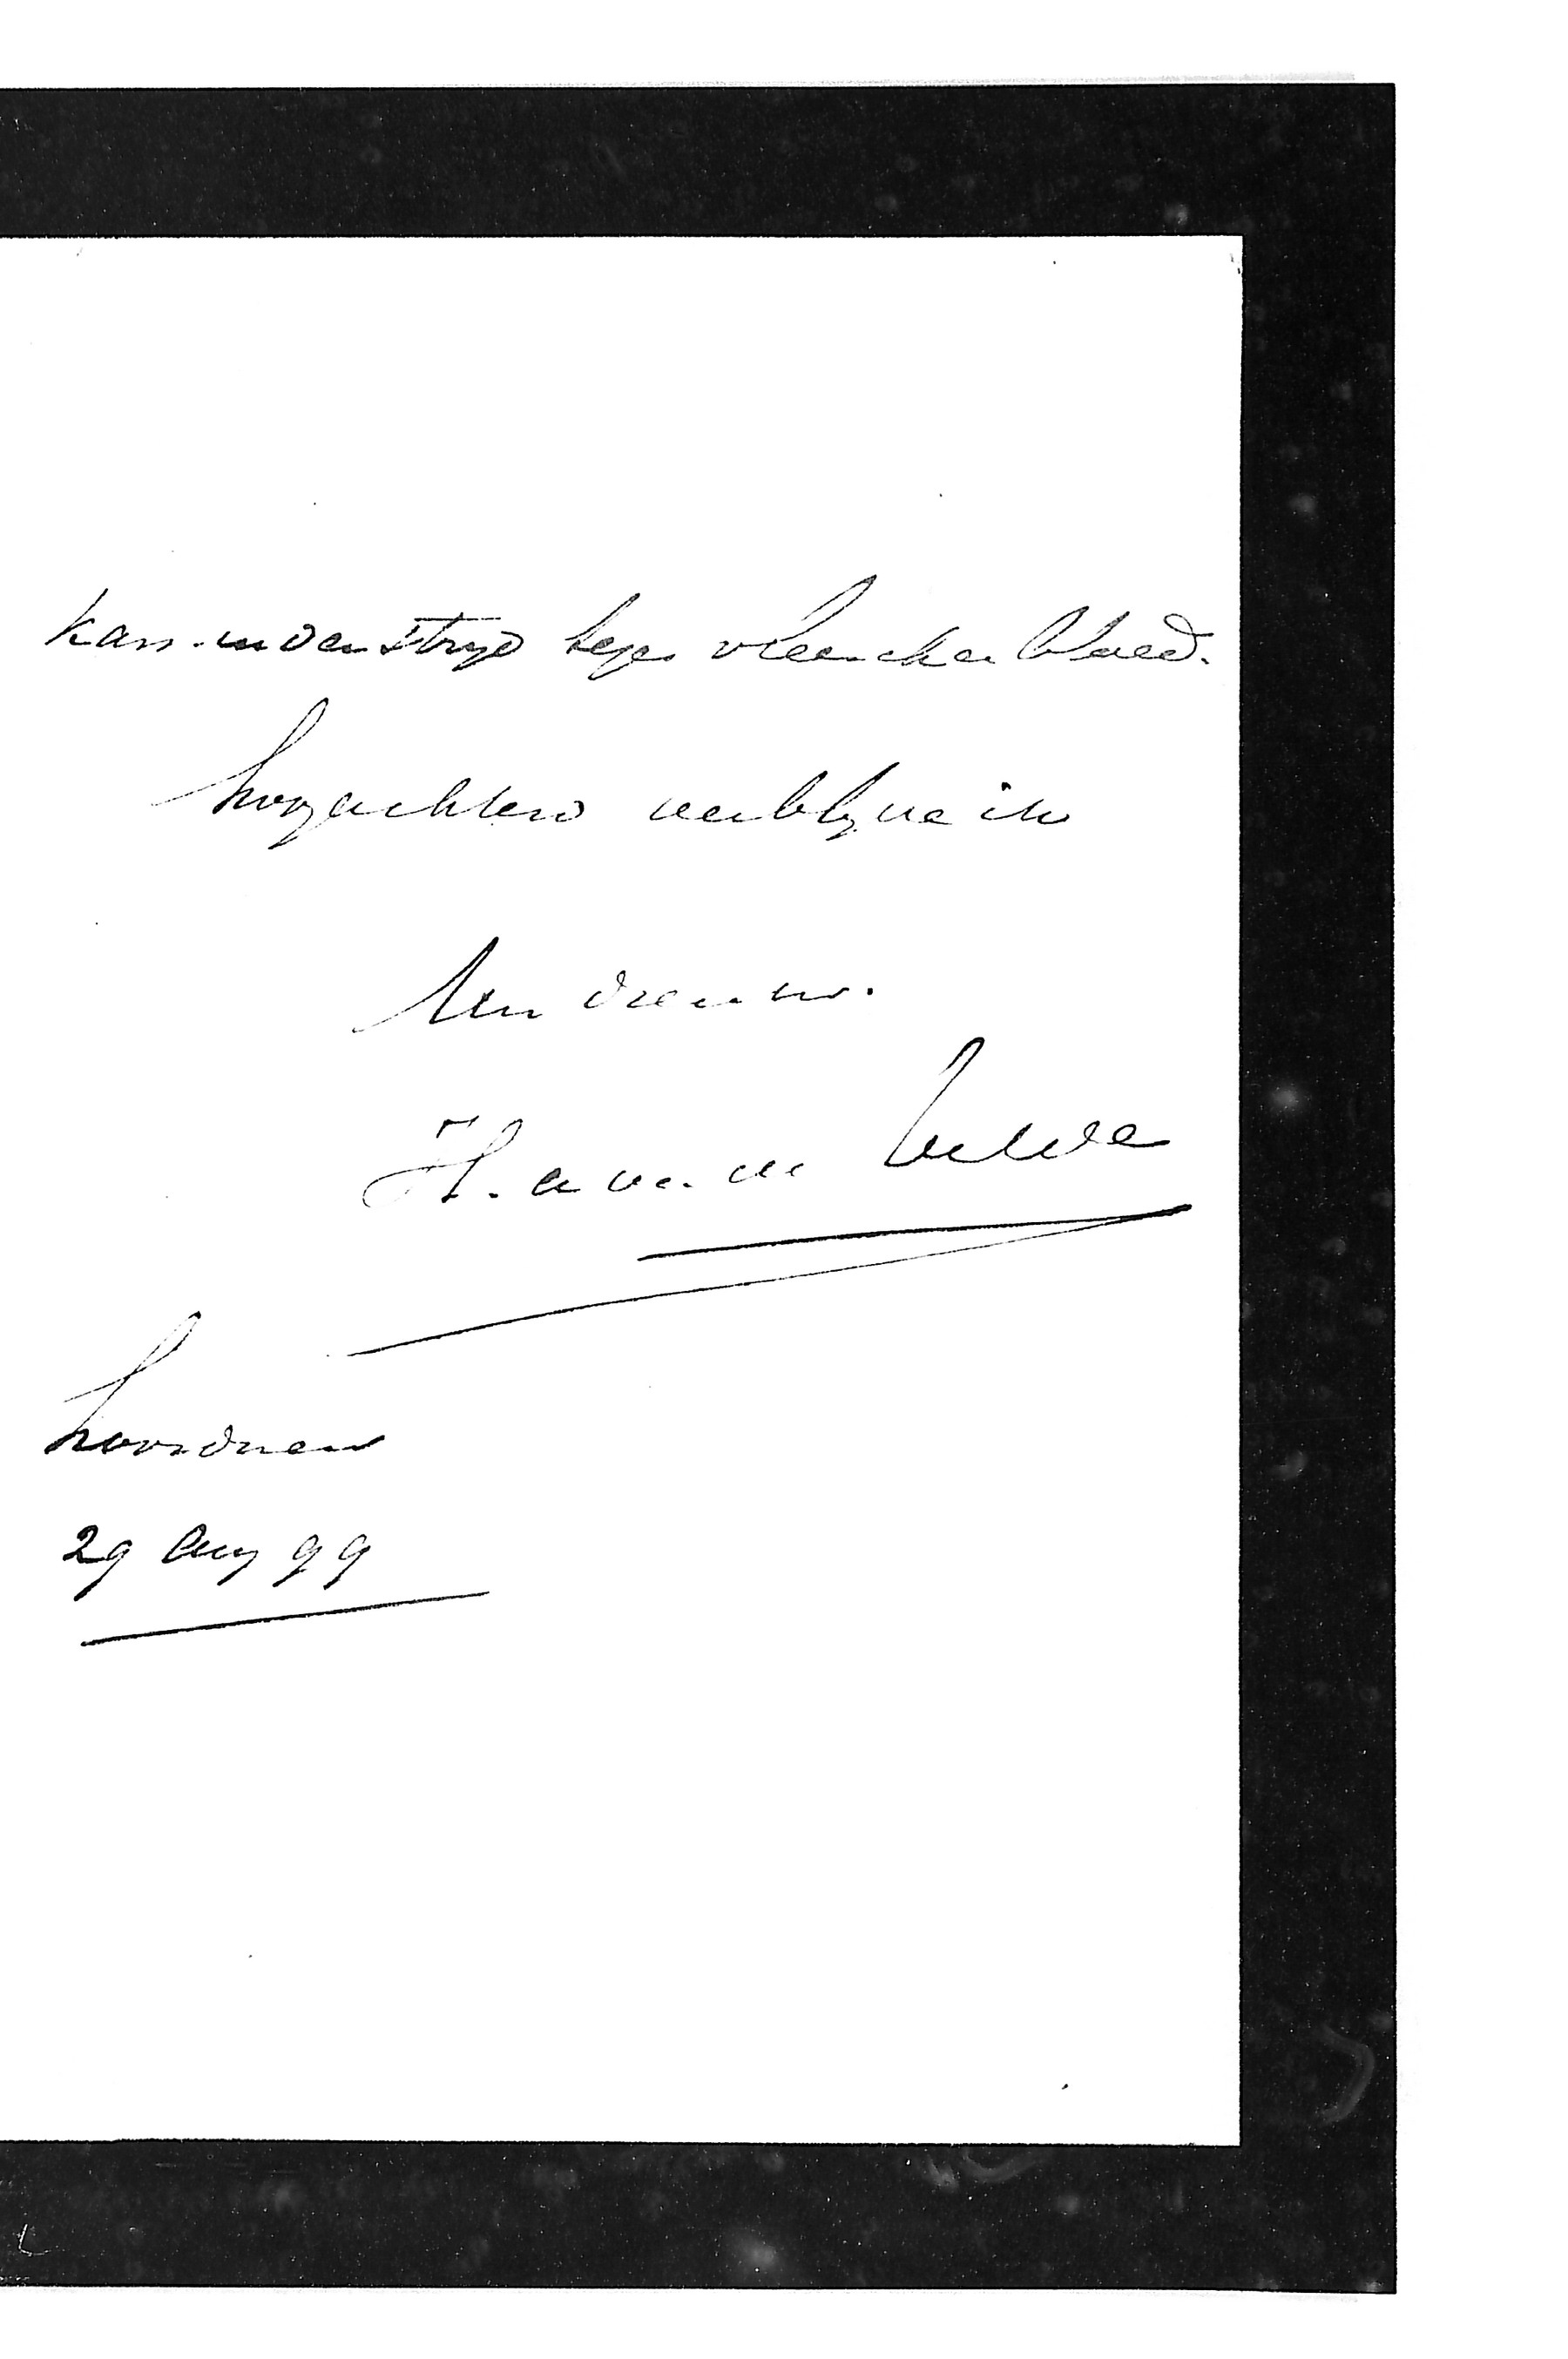 kan in den strijd tegen vleesch en bloed.
hoogachtend verblijve ik
Uw dienaar.
H. A. v. d. Velde
29 Aug 99